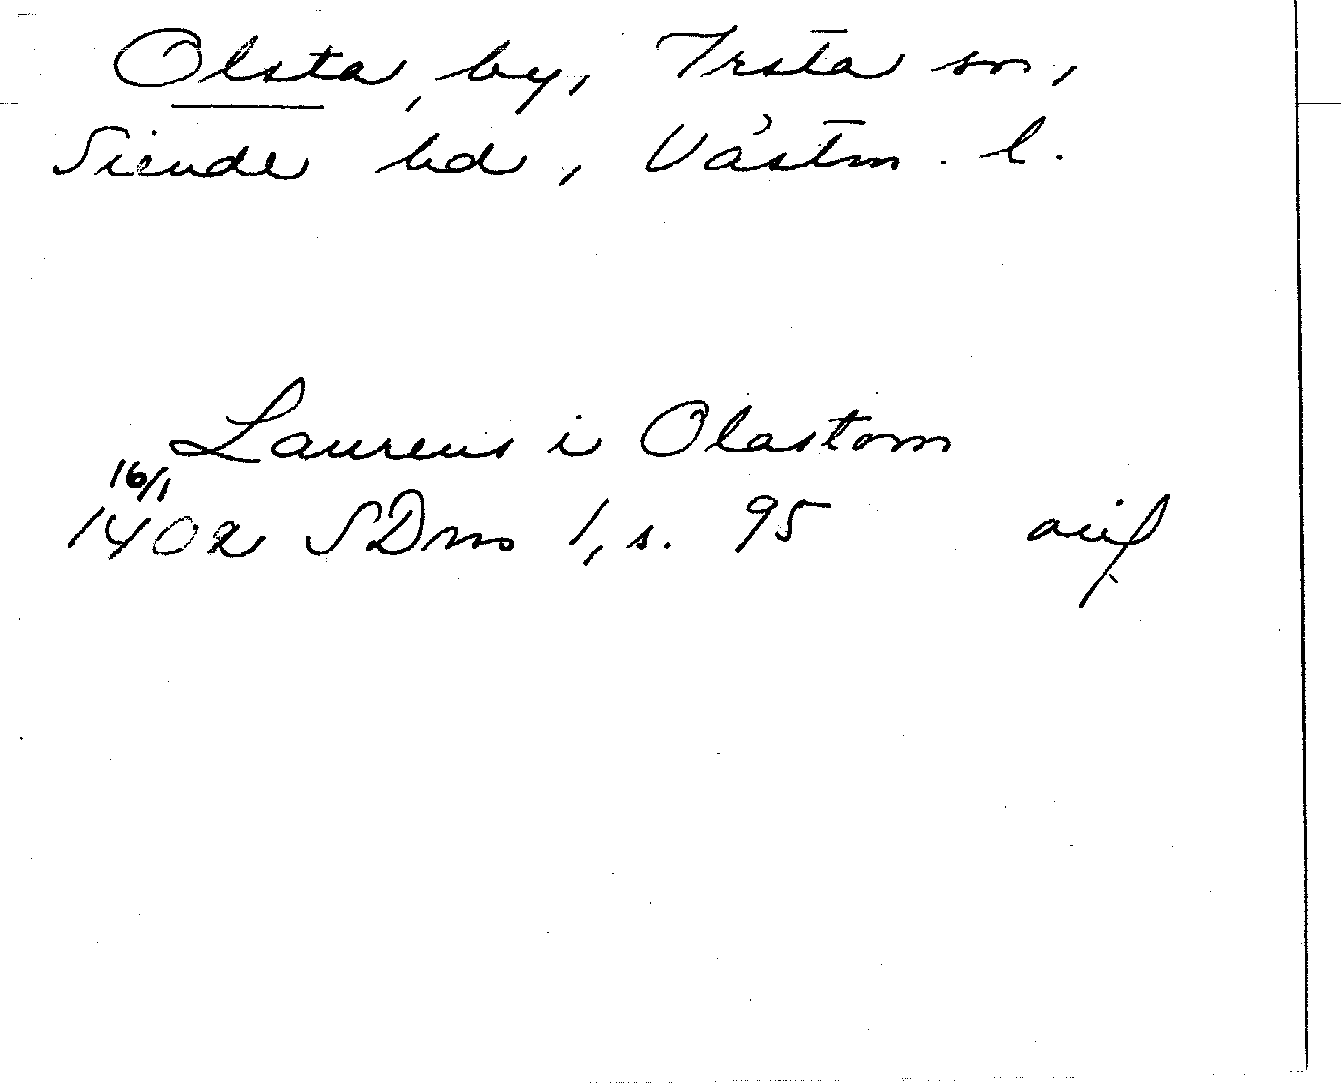 Olsta, by, Irsta sn,
Siende hd, Västm. l.
Laurens i Olastom
16/1
1402 SDns 1, s. 95 avs